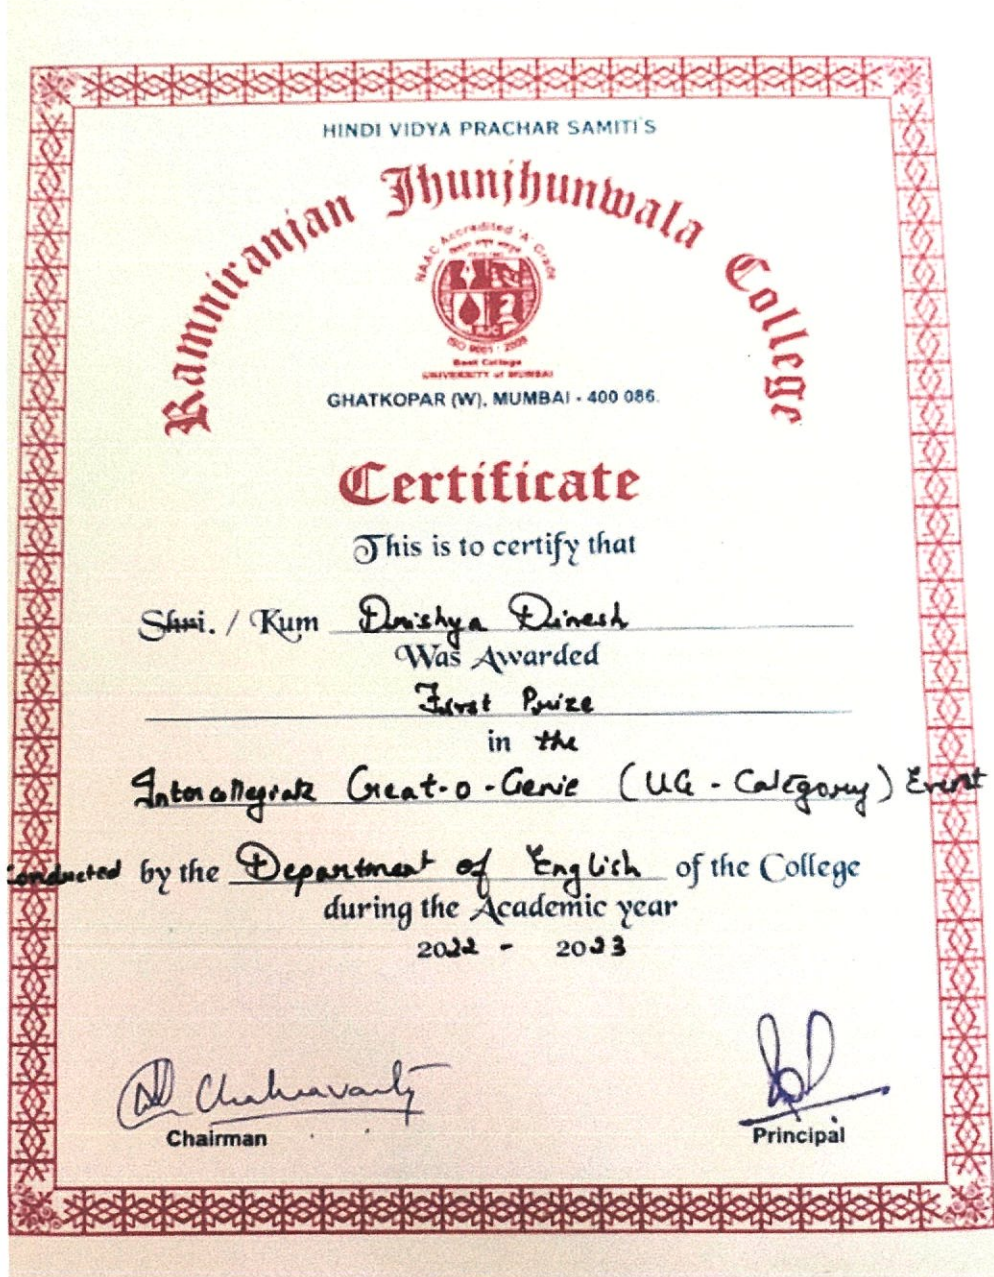 HINDI VIDYA PRACHAR SAMITI'S
Ramniranjan Jhunjhunwala College
NAAC Accredited 'A' Grade
RJC
ISO 9001 : 2008
Best College
UNIVERSITY of MUMBAI
GHATKOPAR (W), MUMBAI - 400 086.
Certificate
This is to certify that
Shri. / Kum Drishya Dinesh
Was Awarded
First Prize
in the
Intercollegiate Creat-o-Genie (UG - Category) Event
Conducted by the Department of English of the College
during the Academic year
2022 - 2023
Chakravarty
Chairman
Principal